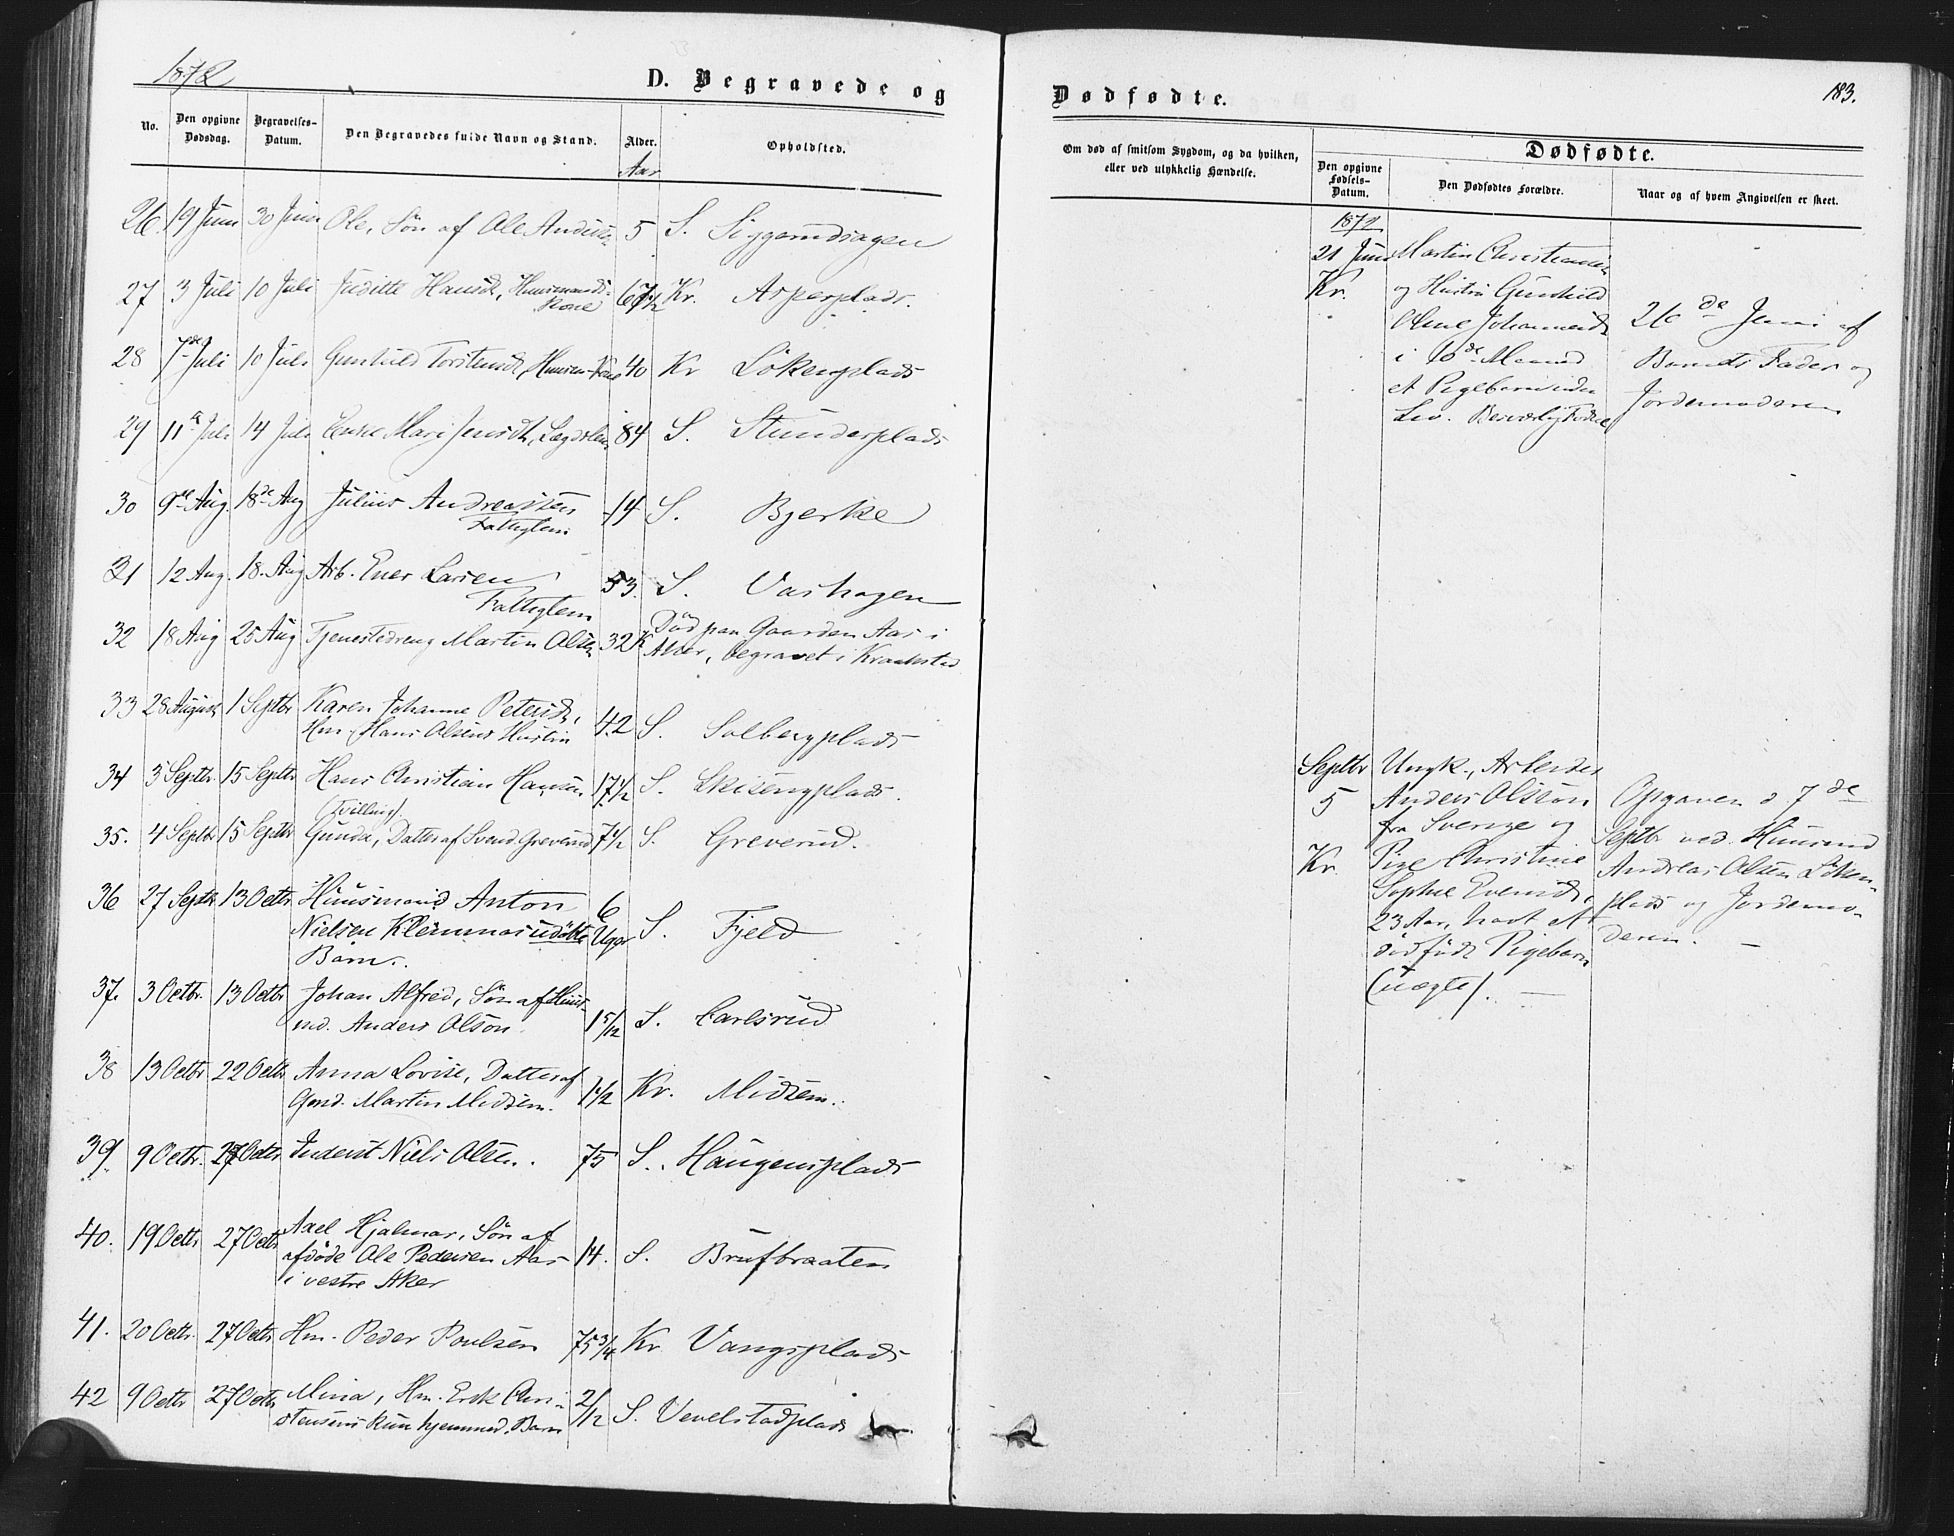 1872
D. Begravede og
No.
Den opgivne Dødsdag.
Begravelses-Datum.
Den Begravedes fulde Navn og Stand.
Alder.
Aar
Opholdsted.
26. 19 Juni 30 Juni Ole, Søn af Ole Anders 5 S.
27 3 Juli 10 Juli Juditte Hansd, Huusmands- 67 1/2 Kr. Asperplads.
Kone
28 7de Juli 10 Juli Gunhild Torstensd, Huusm-Kone 40 Kr Lökenplads
29 11te Juli 14 Juli Mari Jensdt, Lægdslem 84 S. Stunderplads
30 9de Aug. 18de Aug Julius Andreassen 14 S. Bjerke
Fattiglem
31 12 Aug. 18. Aug Arb. Ener Larsen 53. S. Vashagen
Fattiglem
32 18 Aug 25 Aug Tjenestedreng Martin Olsen 32 K Död paa Gaarden Aas i
Aker, begravet i Kraakstad
33 28 August 1 Septbr Karen Johanne Petersd, 42 S. Solbergplads
Hm. Hans Olsens Hustru
34 3 Septbr. 15 Septbr Hans Christian Hansen 17 1/2 S. Skisengplads.
(Tvilling)
35. 4 Septbr 15 Septbr Gunda, Datter af Svend Greverud 7 1/2 S. Greverud.
36 27 Septbr 13 Octbr Huusmand Anton 6
Nielsen Klemmas udøbte Uger S. Fjeld
Barn.
37. 3 Octbr. 13 Octbr Johan Alfred, Søn af Huus-
md. Anders Olson. 1 5/12 S. Carlsrud
38 13 Octbr 22 Octbr Anna Lovise, Datter af
Gmd. Martin Midsem. 1 1/2 Kr. Midsem.
39. 9 Octbr. 27 Octbr Inderst Niels Olsen. 75 S. Haugensplads
40. 19 Octbr 27 Octbr Axel Hjalmar, Søn af
afdöde Ole Pedersen Aas 14. S. Brufbraaten
i vestre Aker
41. 20 Octbr. 27 Octbr Hm. Peder Poulsen 75 3/4 Kr Vangsplads
42 9 Octbr 27 Octbr Mina, Hm. Erik Chri- 2/12 S. Vevelstadplads
stensens kun hjemmed. Barn
Dødfødte.
183.
Om død af smitsom Sygdom, og da hvilken,
eller ved ulykkelig Hændelse.
Dødfødte.
Den opgivne Fødsels-Datum.
Den Dødfødtes Forældre.
Naar og af hvem Angivelsen er skeet.
1872
21 Juni Martin Christiansen
Kr. og Hustru Gunhild
Oline Johannesdt 26de Juni af
i 10de Maaned Barnets Fader og
et Pigebarn uden Jordemoderen
Liv. Besværlig Fødsel
Septbr Ungk., Arbeider
5 Anders Olsson Opgaven d 7de
fra Sverige og Septbr ved Huusmd
Kr. Pige Christine Andreas Olsen Löken-
Sophie Evensd, plads og Jordemo-
23 Aar, havt et deren. —
dødfødt Pigebarn
(uægte). —